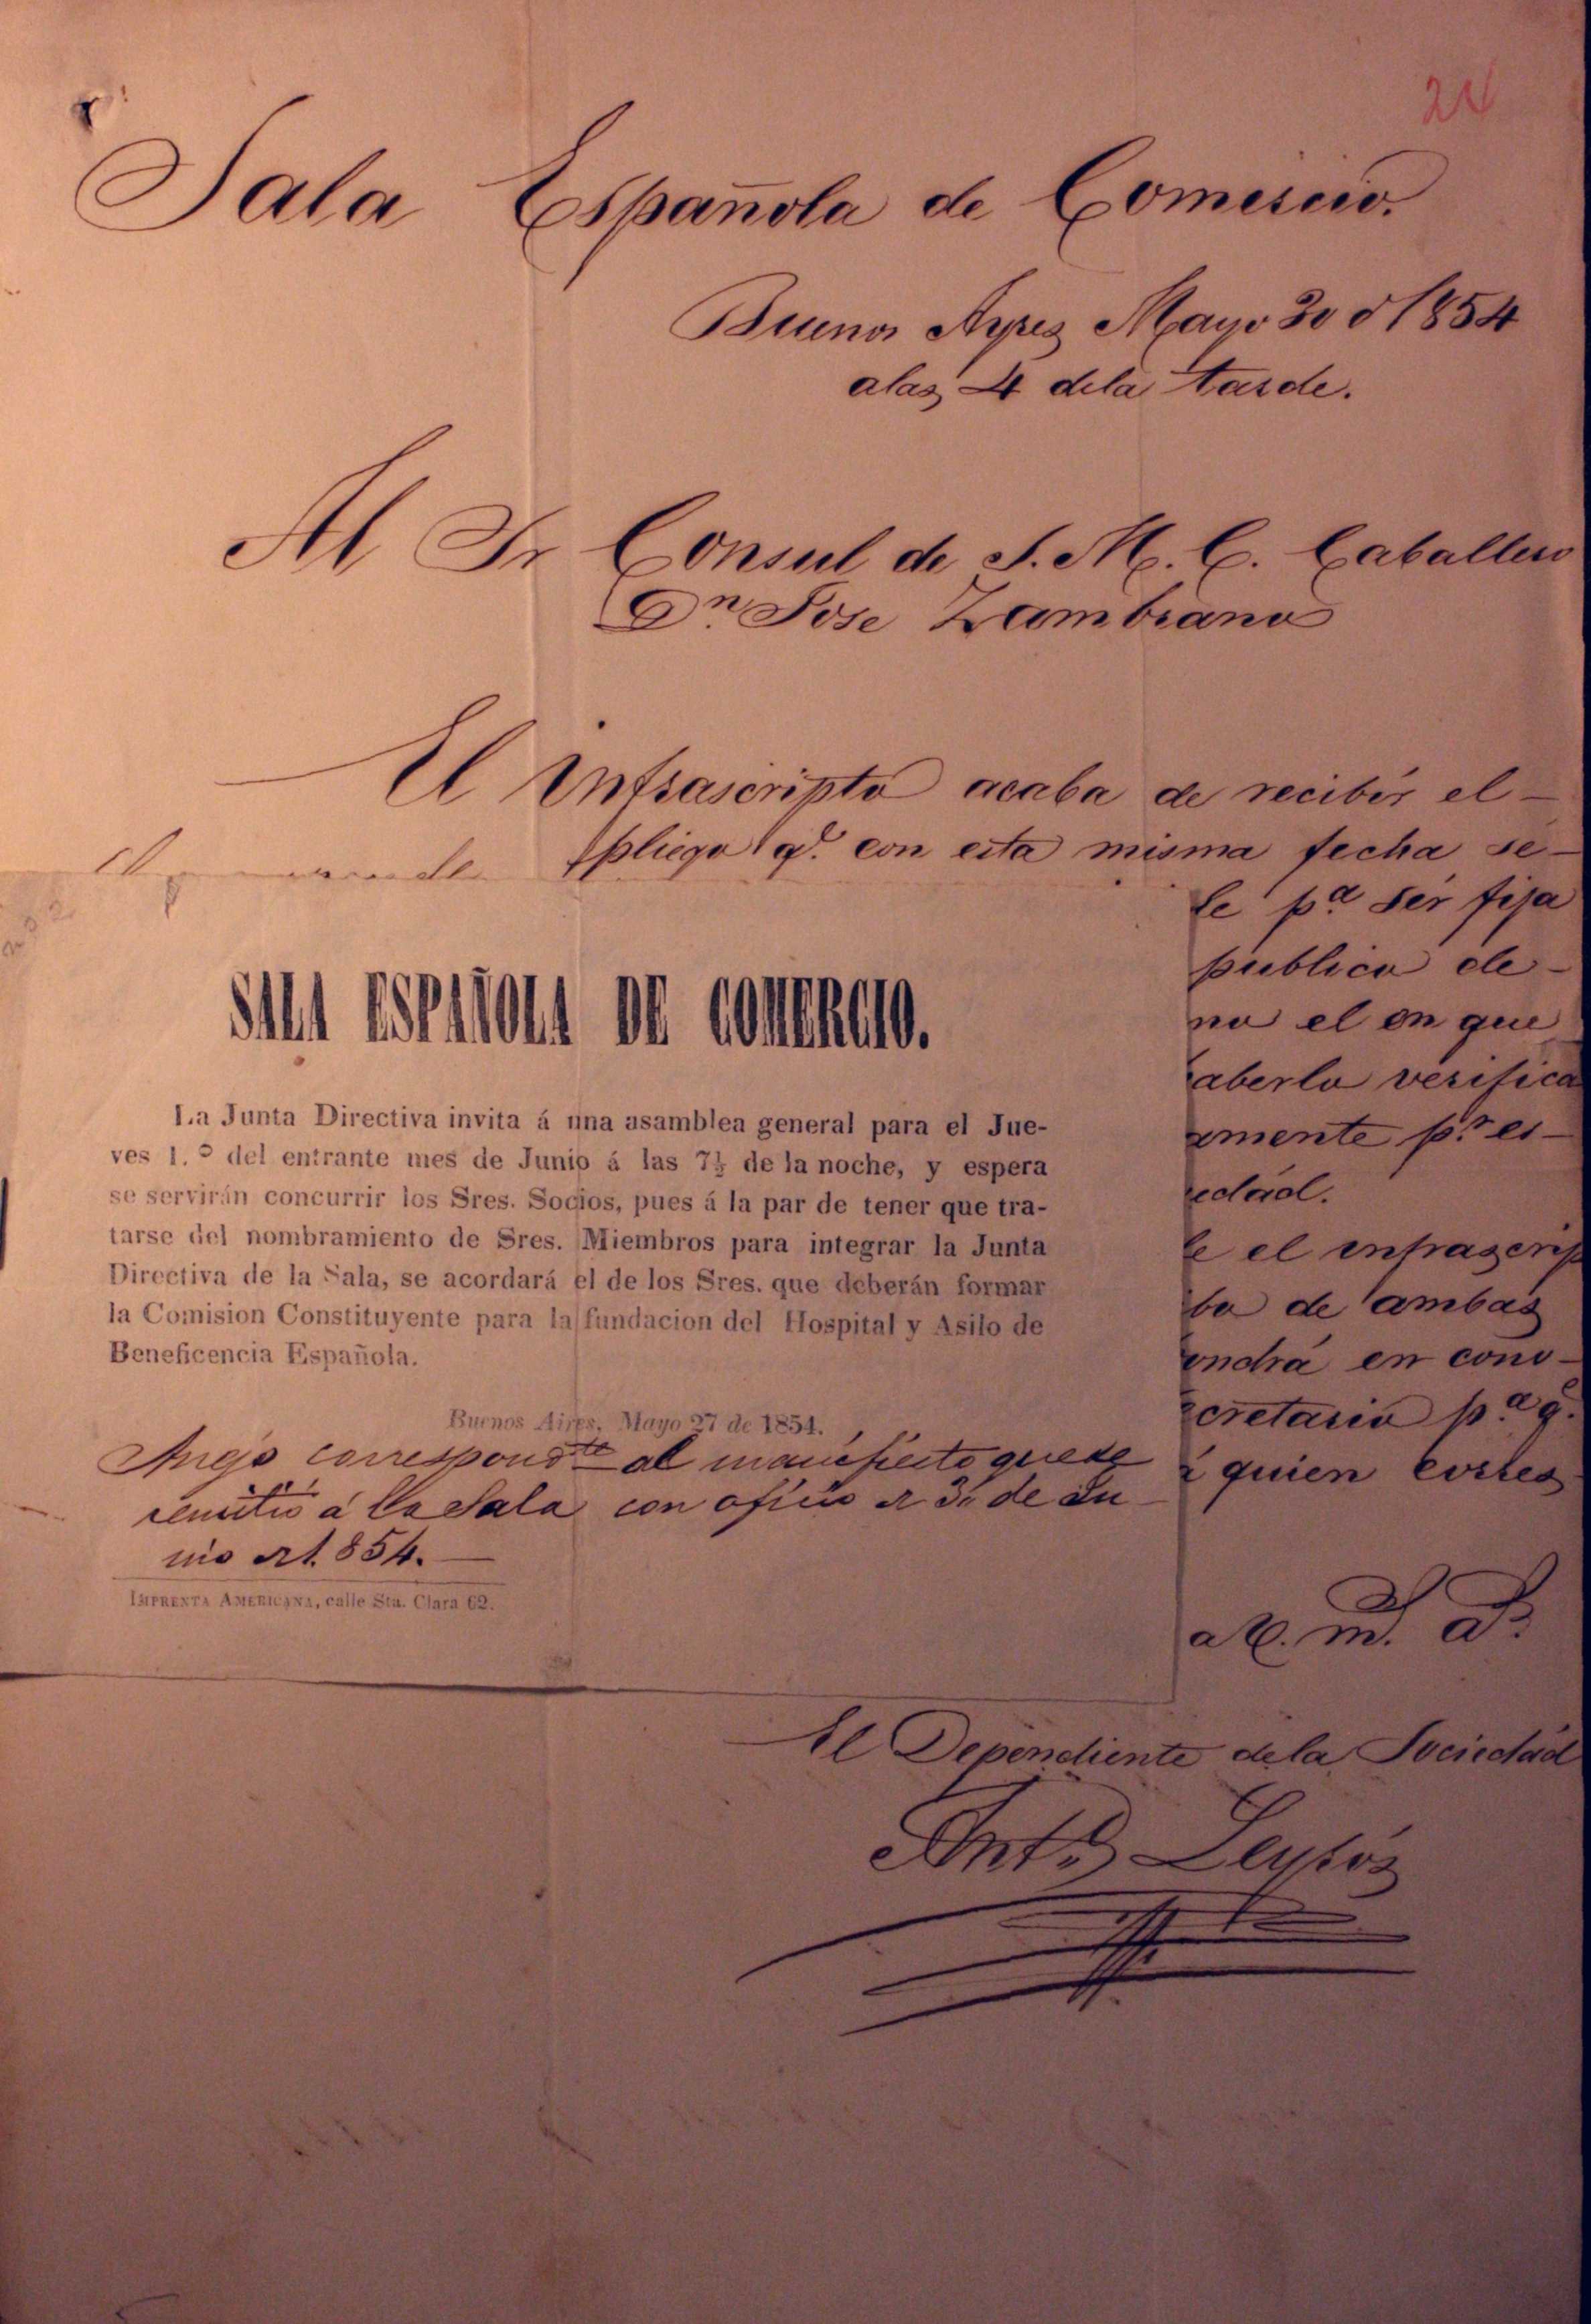 24
Sala Española de Comercio.
Buenos Ayres Mayo 30 d 1854
alas 4 dela tarde.
Al Sr Consul de S. M. C. Caballero
Dn. Jose Zambrano
El Infrascripto acaba de recibir el -
pliego q.e con esta misma fecha se -
le pa. ser fija
publico de -
no el en que
aberlo verifica
amente pr. es -
edad.
le el infrascrip
bo de ambas
ondrá en cono -
ecretario pa. q.e
á quien corres
SALA ESPAÑOLA DE COMERCIO.
La Junta Directiva invita á una asamblea general para el Jue-
ves 1.º del entrante mes de Junio á las 7½ de la noche, y espera
se servirán concurrir los Sres. Socios, pues á la par de tener que tra-
tarse del nombramiento de Sres. Miembros para integrar la Junta
Directiva de la Sala, se acordará el de los Sres. que deberán formar
la Comision Constituyente para la fundacion del Hospital y Asilo de
Beneficencia Española.
Buenos Aires, Mayo 27 de 1854.
Anejo correspondte al manifiesto que se
remitió á la Sala con oficio de 30 de Ju -
nio de 1.854.
IMPRENTA AMERICANA, calle Sta. Clara 62.
El Dependiente dela Sociedad
Anto.